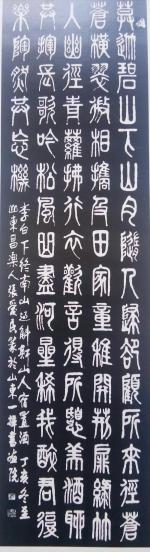 暮從碧山下山月隨人歸卻顧所來徑蒼
蒼橫翠微相攜及田家童稚開荊扉綠竹
入幽徑青蘿拂行衣歡言得所憩美酒聊
共揮長歌吟松風曲盡河星稀我醉君復
樂陶然共忘機
李白下終南山過斛斯山人宿置酒 丁亥冬至
山東昌樂人張愛民篆於山東一樺書院